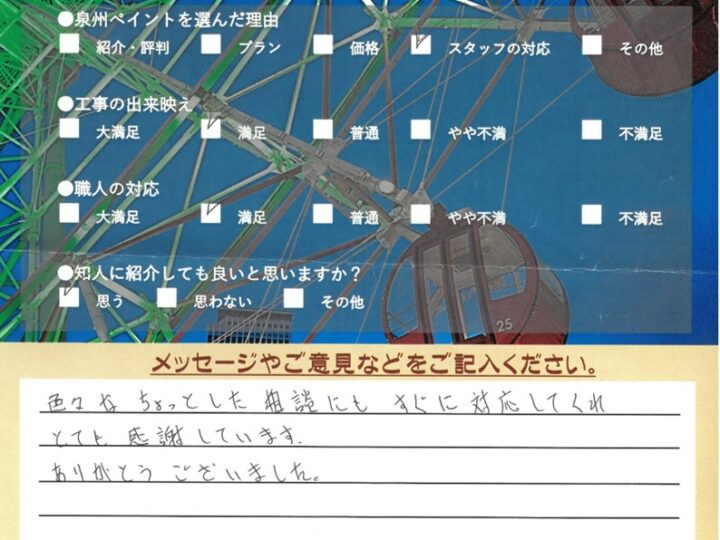 ●泉州ペイントを選んだ理由
紹介・評判 プラン 価格 スタッフの対応 その他
●工事の出来映え
大満足 満足 普通 やや不満 不満足
●職人の対応
大満足 満足 普通 やや不満 不満足
●知人に紹介しても良いと思いますか？
思う 思わない その他
25
メッセージやご意見などをご記入ください。
色々な ちょっとした 相談にも すぐに 対応してくれ
とても 感謝しています.
ありがとう ございました。